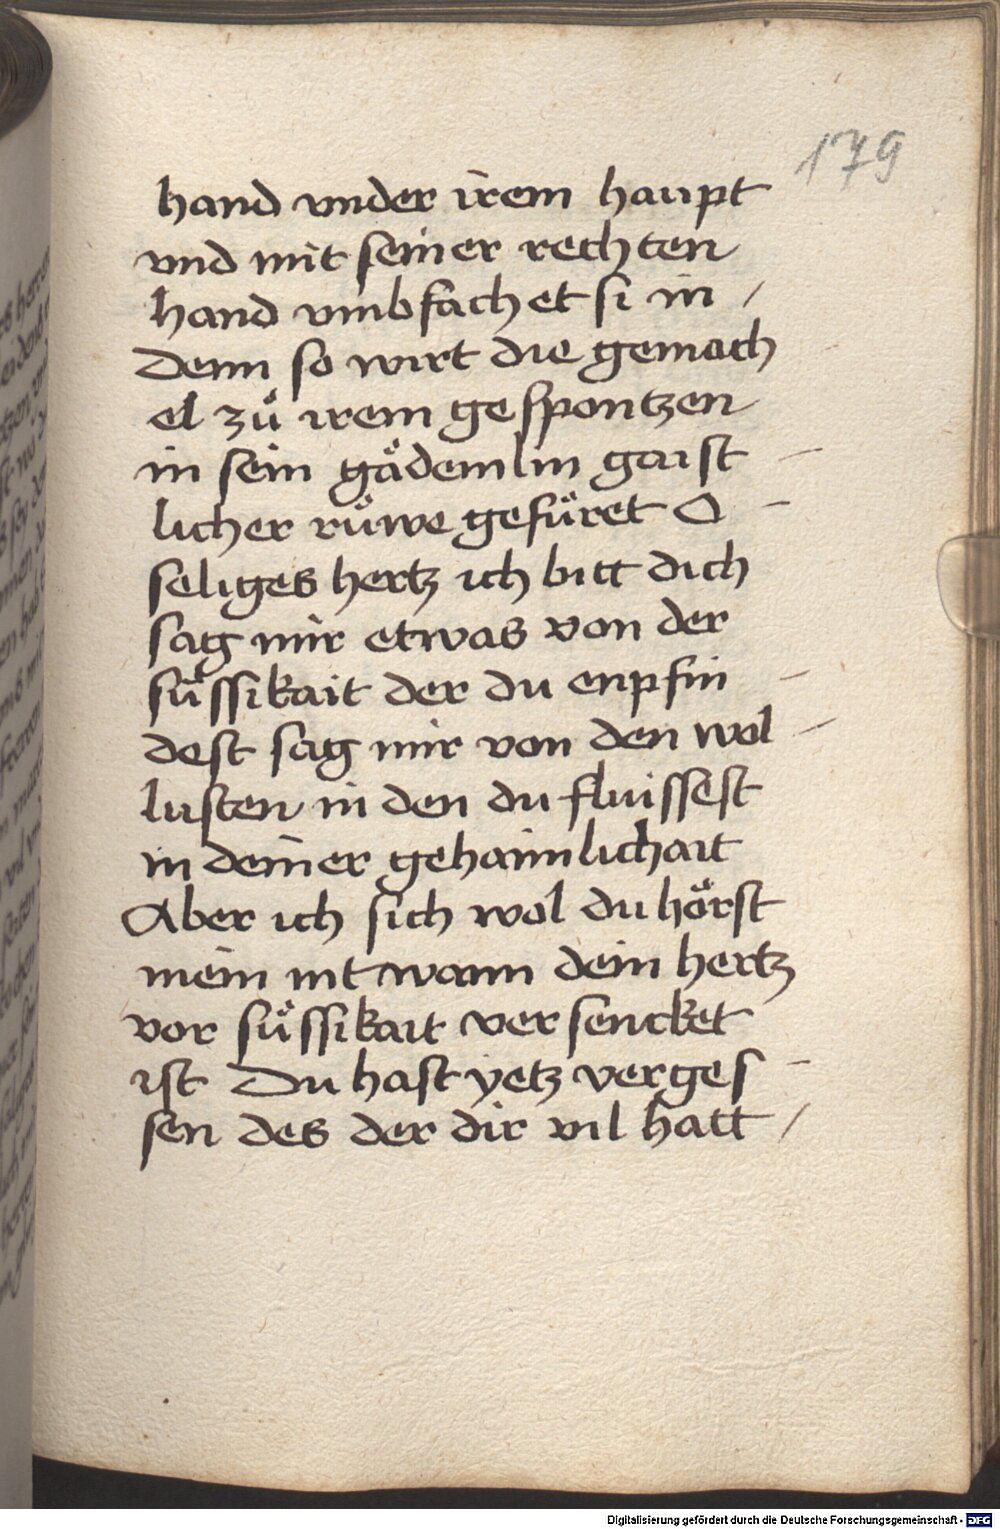 179
hand vnder irem haupt
vnd mit seiner rechten
hand vmbfachet si in /
Denn so wirt die gemach
el zuͦ irem gespontzen
in sein gaͤdemlin gaist -
licher ruͦwe gefuͤret O -
seliges hertz ich bitt dich
sag mir etwas von der
suͤssikait der du enpfin -
dest sag mir von den wol -
lusten in den du fluissest
in deiner gehaimlichait
Aber ich sich wol du hoͤrst
mein nit wann dein hertz
vor suͤssikait versencket
ist Du hast yetz verges -
sen des der dir vil hatt /
Digitalisierung gefördert durch die Deutsche Forschungsgemeinschaft - DFG